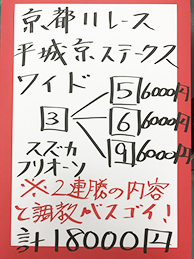 京都11レース
平城京ステークス
ワイド
5 6000円
3 6 6000円
9 6000円
スズカ
フリオーソ
※2連勝の内容
と調教バスゴイ!
計18000円